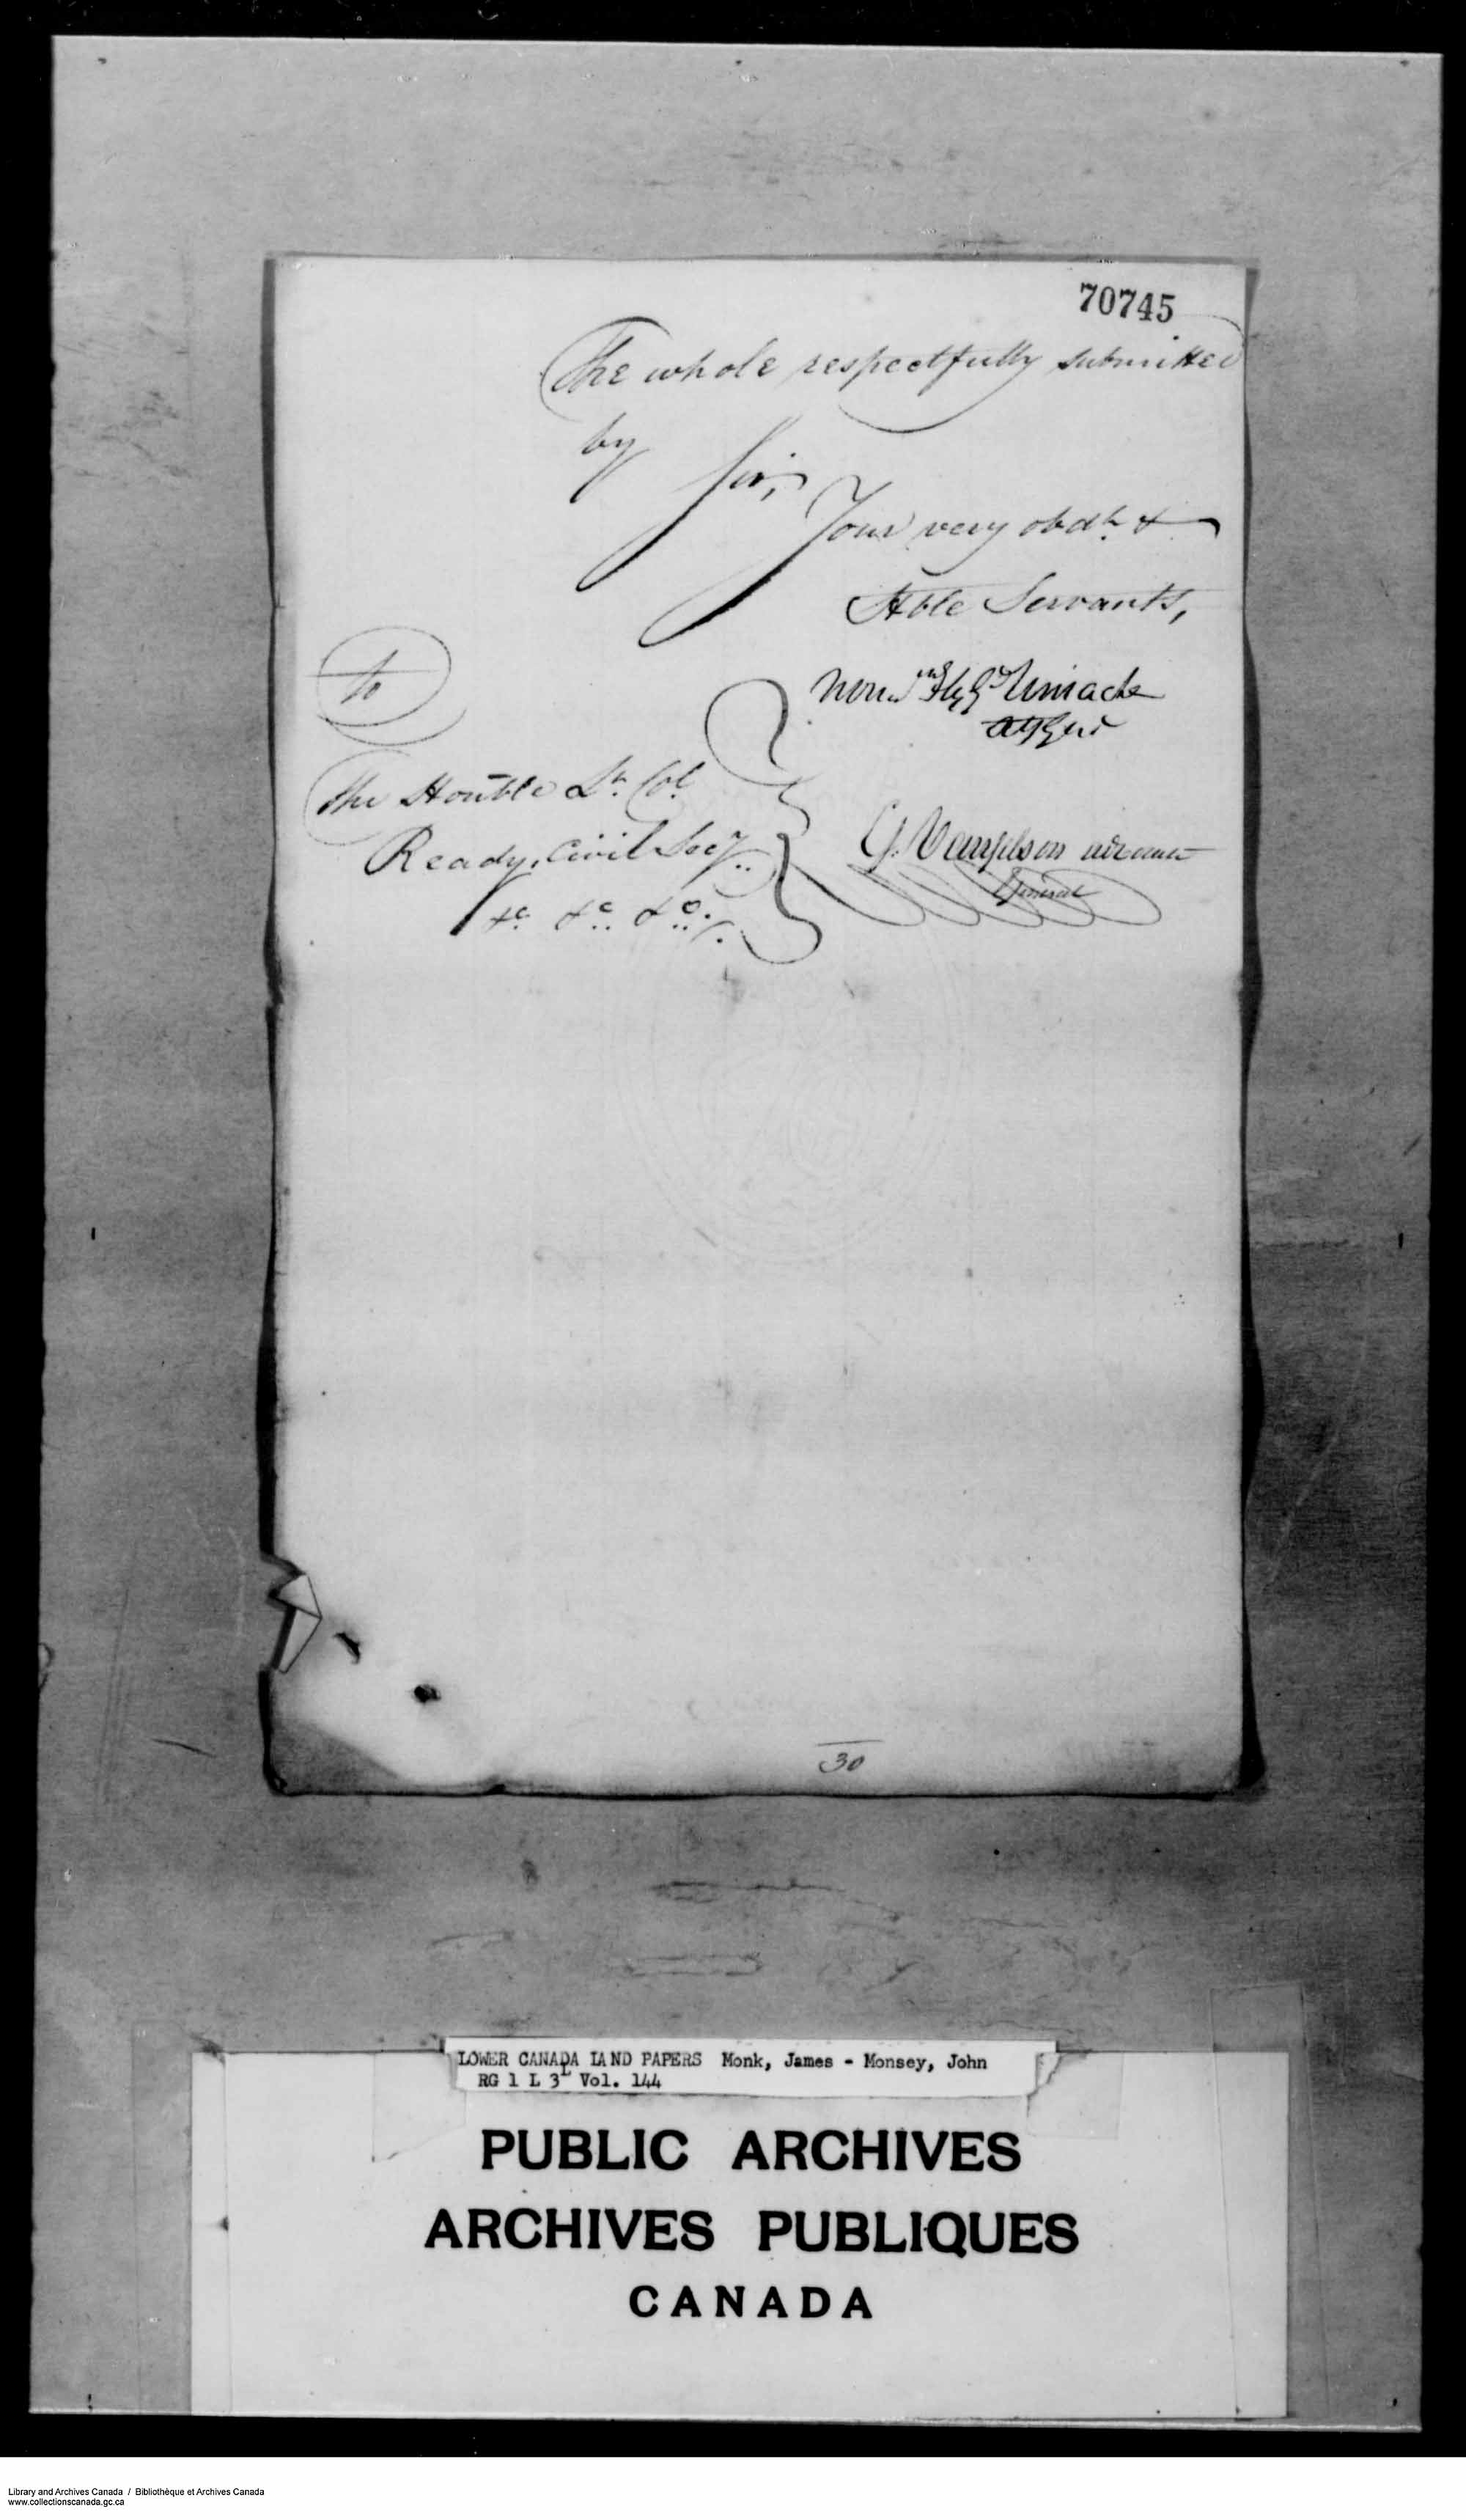 70745
The whole respectfully submitted
by Sir,
Your very obdt. &
Hble Servants,
Norm. Fitzgd. Uniacke
Att Genl
to
The Honble Lt. Col.
Ready, Civil Secy..
&c. &c. &c.
G. Vanfelson advocate
General
30
LOWER CANADA LAND PAPERS Monk, James - Monsey, John
RG 1 L 3L Vol. 144
PUBLIC ARCHIVES
ARCHIVES PUBLIQUES
CANADA
Library and Archives Canada / Bibliothèque et Archives Canada
www.collectionscanada.gc.ca